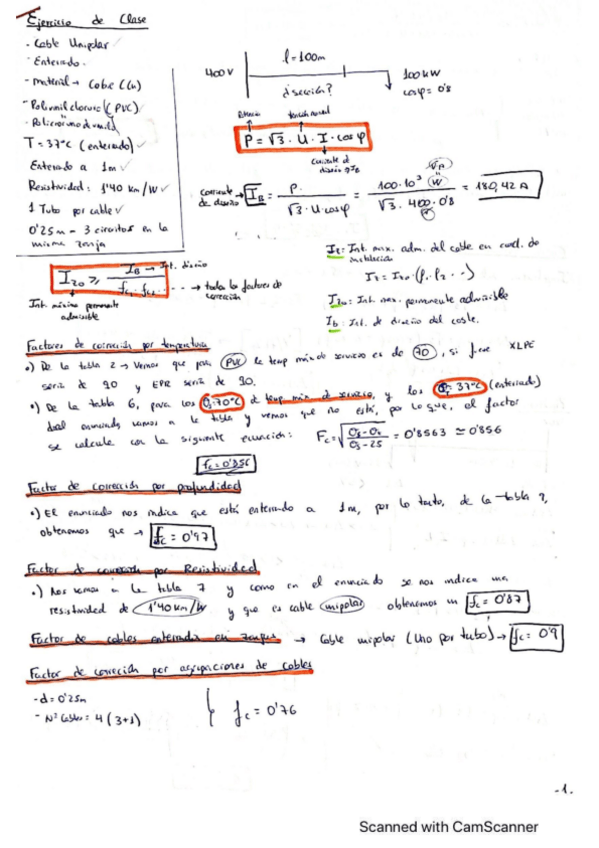 Ejercicio de Clase
- Cable Unipolar ✓
- Enterrado ✓
- Material → Cobre (Cu)
- Polivinil cloruro (PVC)
T = 37°C (enterrado) ✓
Enterrado a 1m ✓
Resistividad: 1'40 km/W ✓
1 Tubo por cable ✓
0'25m - 3 circuitos en la
misma zanja
400V
l = 100m
¿sección?
100 kW
cosφ = 0'8
Potencia
tensión nominal
P = √3 · U · I · cos φ
Corriente de diseño
corriente de diseño
I_B = P / (√3 · U · cosφ) = 100·10³ (W) / (√3 · 400 · 0'8) = 180,42 A
I_z0 ≥ I_B / (fc₁ · fc₂ ...)
→ Int. diseño
→ todos los factores de corrección
Int. máxima permanente
admisible
I_z = Int. max. adm. del cable en cond. de
instalación
I_z = I_z0 · (f₁ · f₂ ...)
I_z0: Int. max. permanente admisible
I_b: Int. de diseño del cable.
Factores de corrección por temperatura
•) De la tabla 2 → Vemos que para PVC la temp máx de servicio es de 70, si fuese XLPE
sería de 90 y EPR sería de 90.
•) De la tabla 6, para los θs=70°C de temp máx de servicio, y los 37°C (enterrado)
del enunciado vamos a la tabla y vemos que no está, por lo que, el factor
se calcula con la siguiente ecuación: Fc = √((θs-θt)/(θs-25)) = 0'8563 ≃ 0'856
fc = 0'856
Factor de corrección por profundidad
•) El enunciado nos indica que está enterrado a 1m, por lo tanto, de la tabla 9,
obtenemos que → fc = 0'97
Factor de corrección por Resistividad
•) Nos vamos a la tabla 7 y como en el enunciado se nos indica una
resistividad de 1'40 km/W y que es cable unipolar obtenemos un fc = 0'87
Factor de cables enterrados en zanjas → Cable unipolar (Uno por tubo) → fc = 0'9
Factor de corrección por agrupaciones de cables
- d = 0'25m
- Nº Cables = 4 (3+1)
fc = 0'76
-1.
Scanned with CamScanner